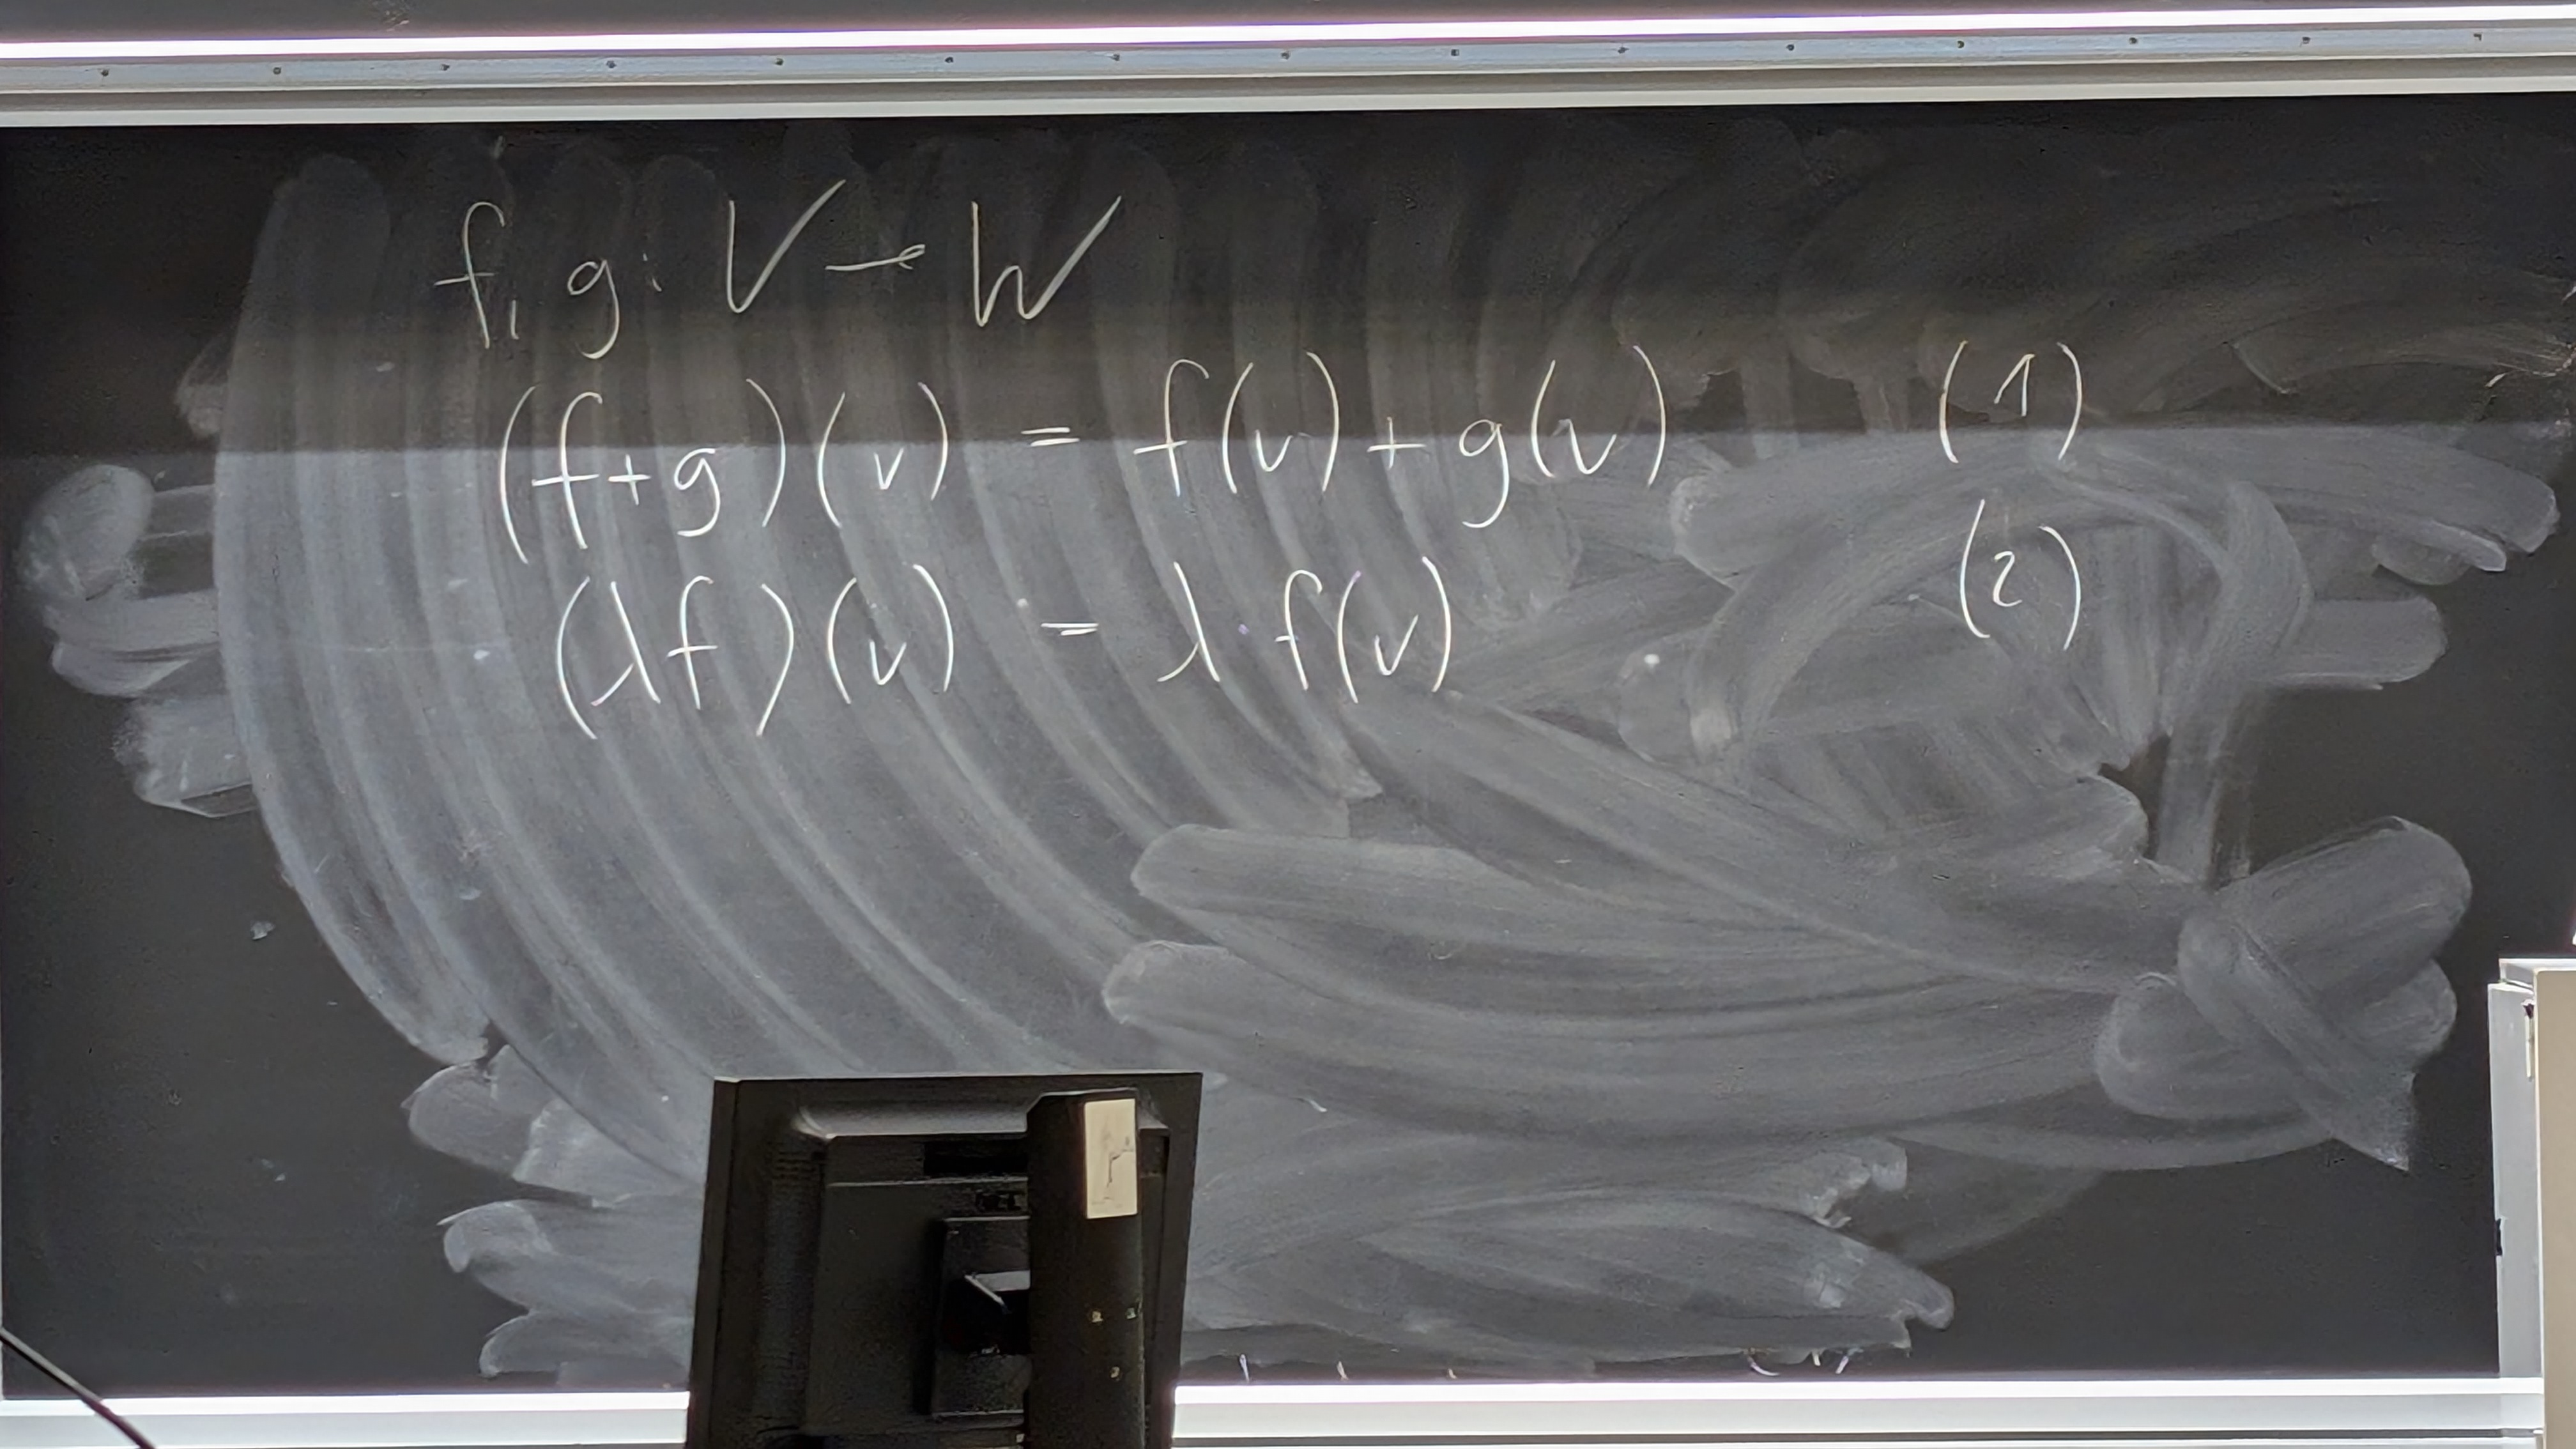 f, g: V → W
(f+g)(v) = f(v) + g(v) (1)
(λf)(v) = λ · f(v) (2)